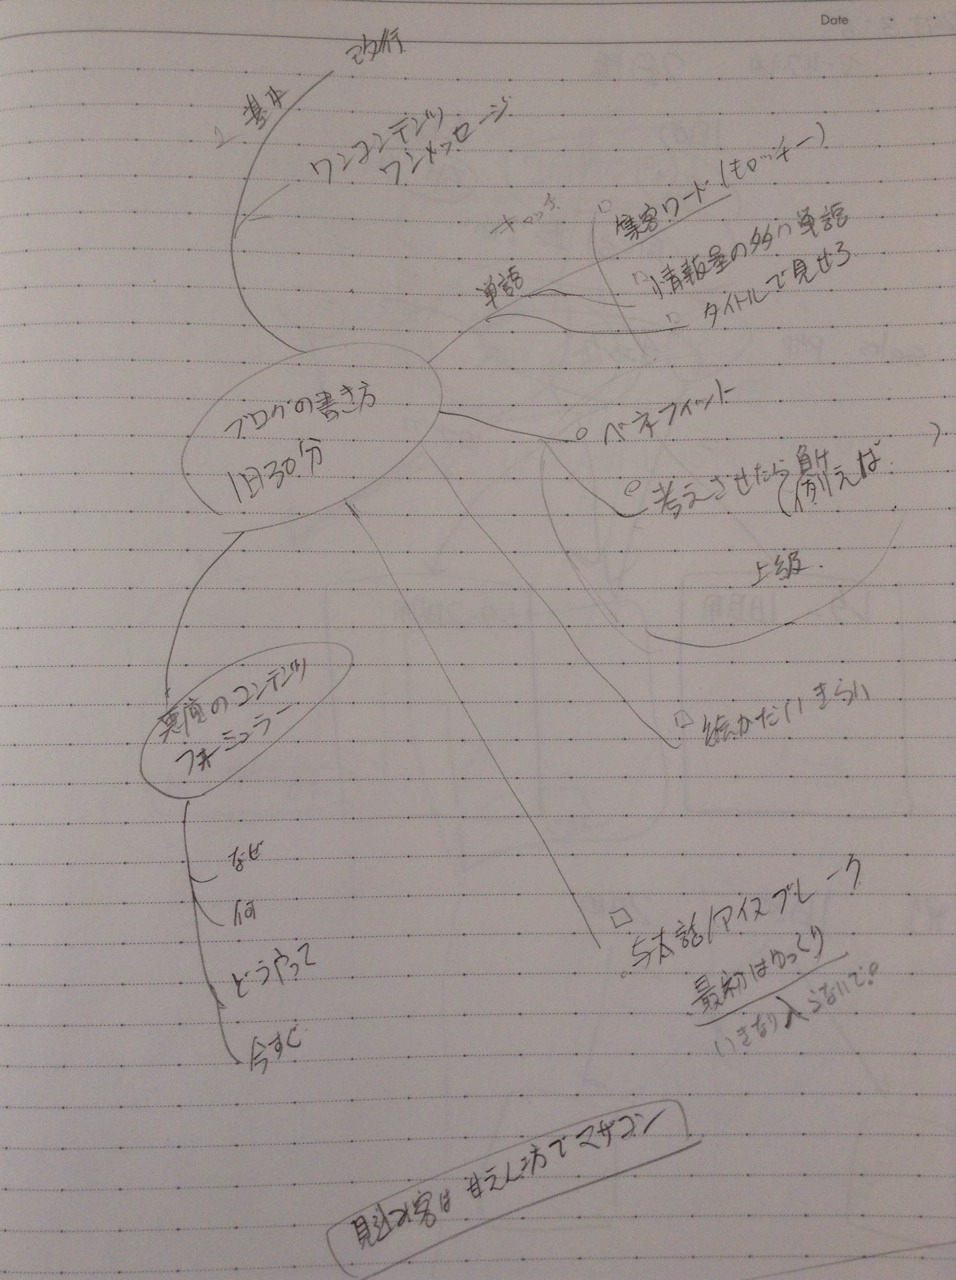 Date
改行
基本
ワンコンテンツ
ワンメッセージ
キャッチ
集客ワード(キロッキー)
単語
情報量の多い単語
タイトルで見せろ
ブログの書き方
1日30分
ベネフィット
考えさせたら負け
(例えば )
上級
のコンテンツ
フォーミュラー
なぜ
何
どうやって
今すぐ
話/アイスブレーク
最初はゆっくり
いきなり入らないで。
見込み客は甘えん坊でマザコン